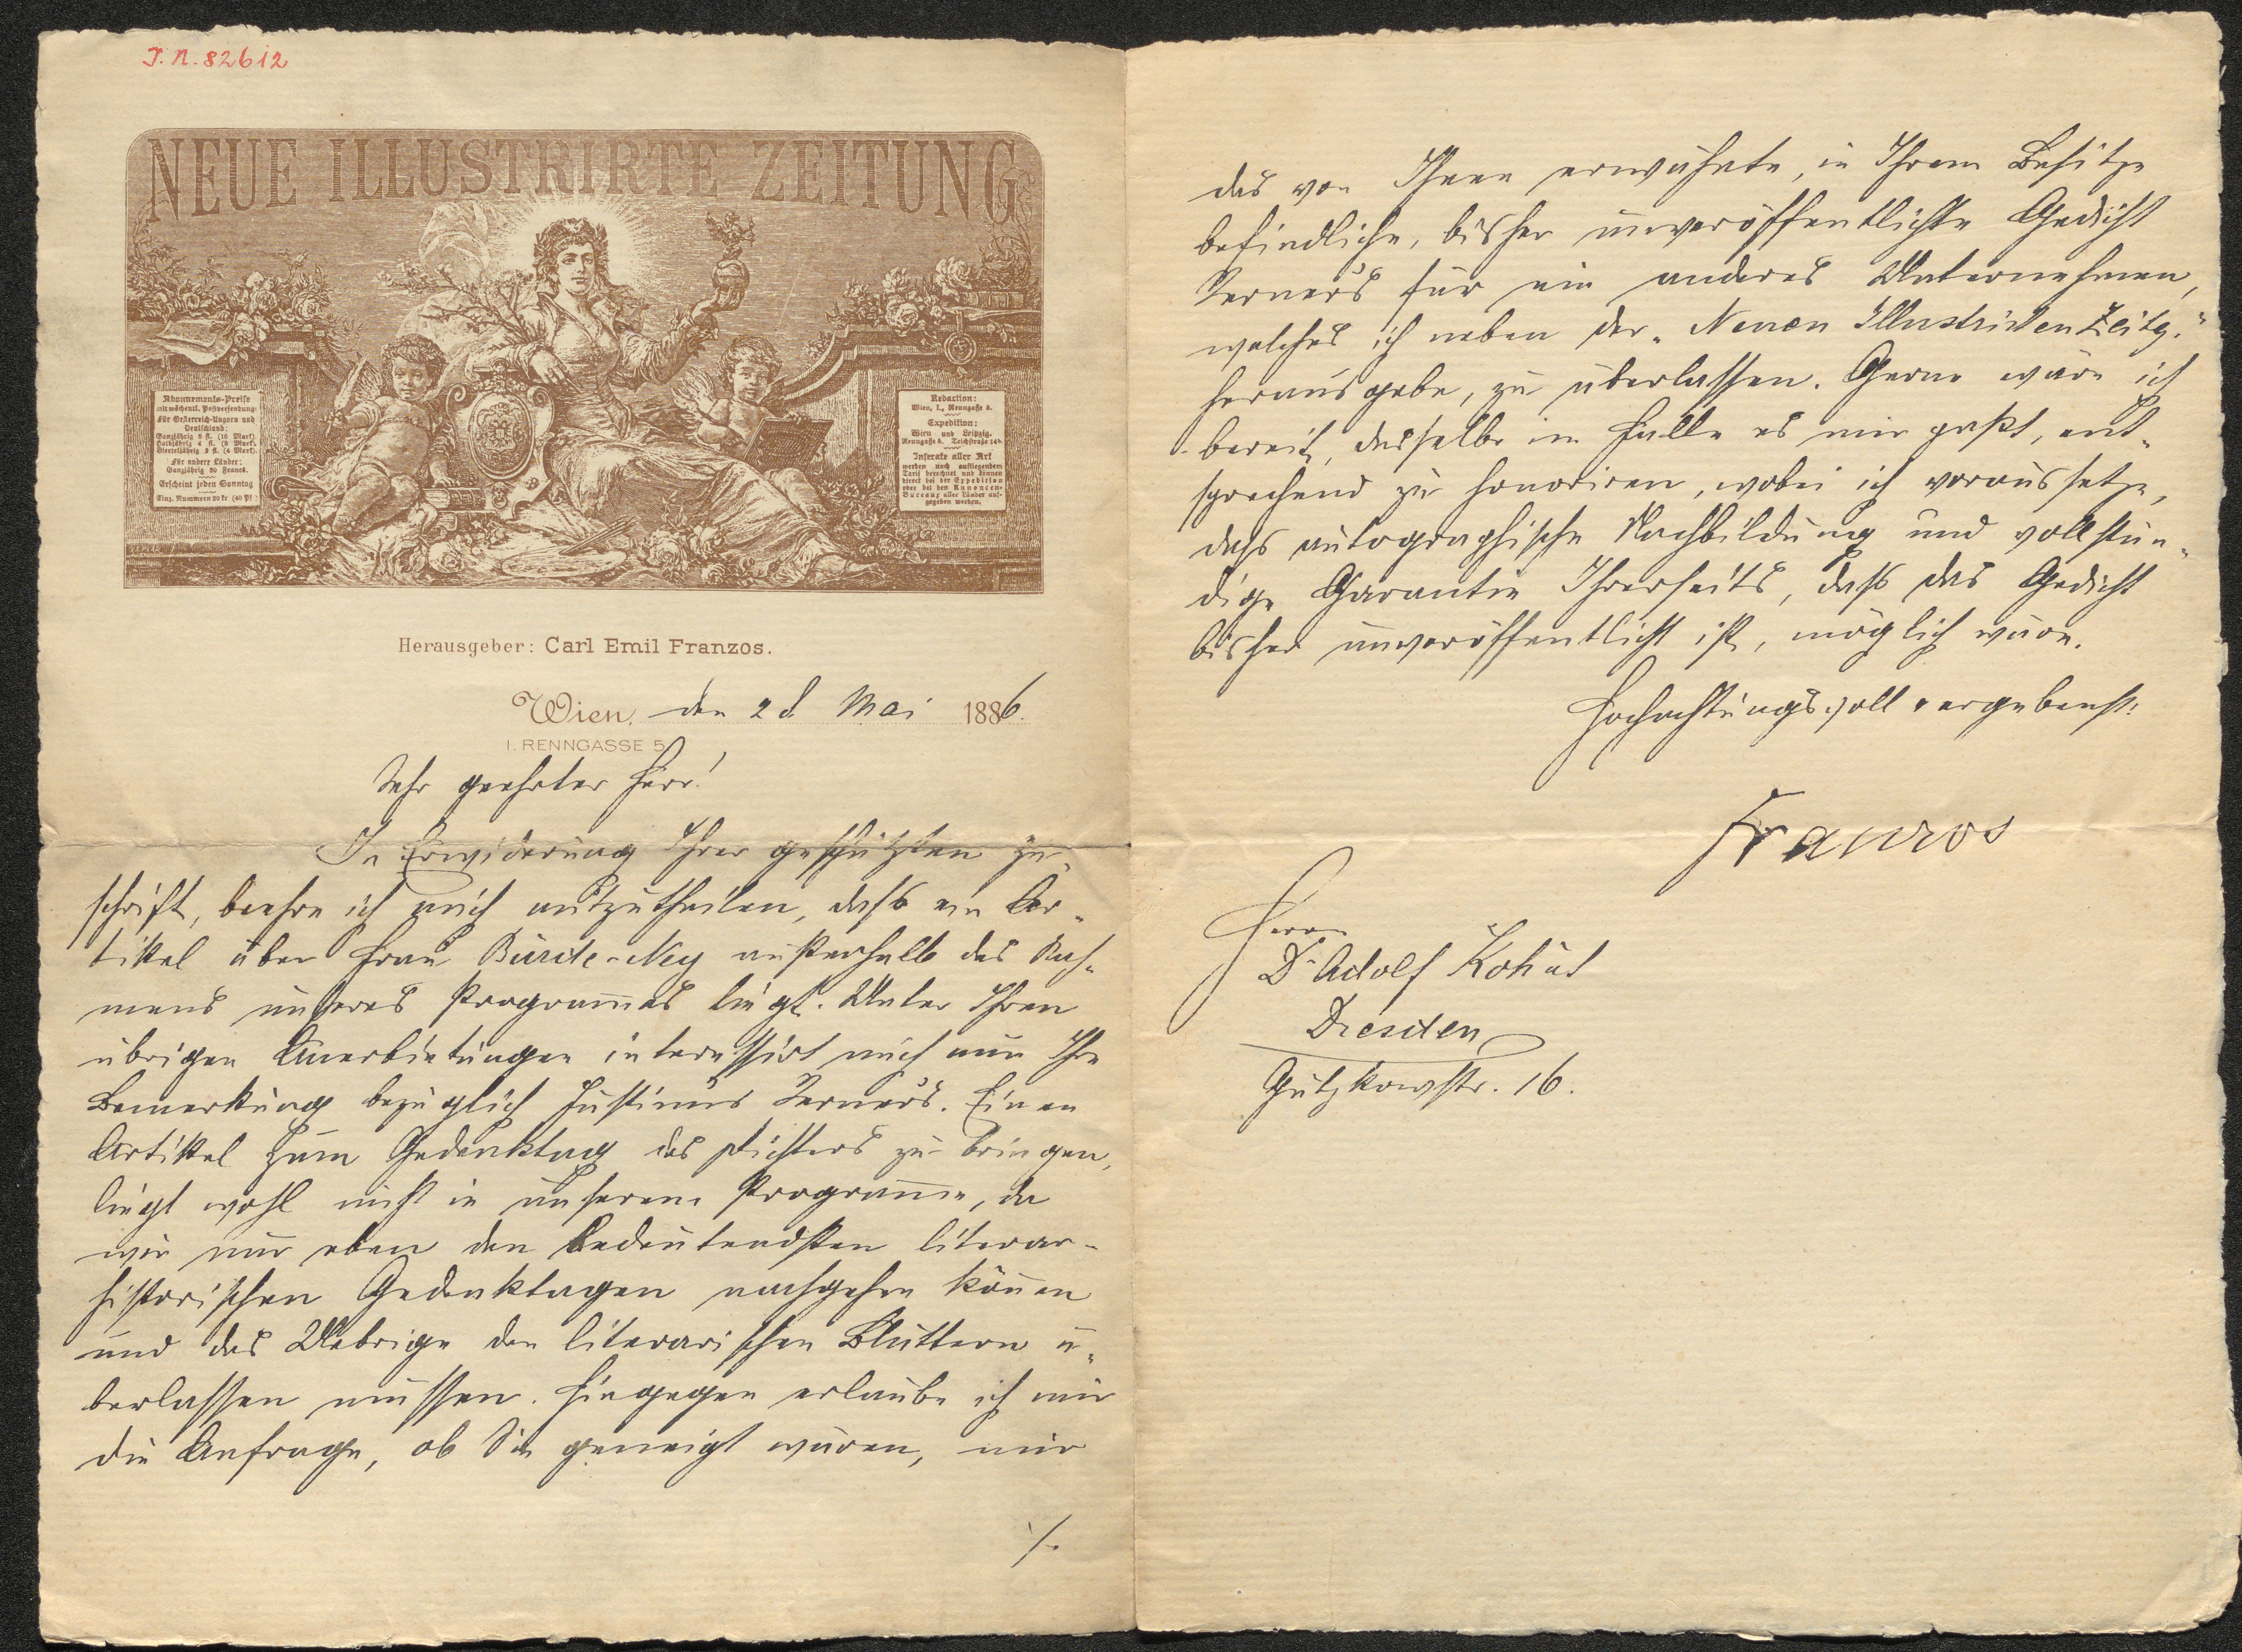 I.N. 82612
NEUE ILLUSTRIRTE ZEITUNG
Abonnements-Preise
mit wöchentl. Postversendung:
Für Oesterreich-Ungarn und
Deutschland:
Ganzjährig 8 fl. (16 Mark).
Halbjährig 4 fl. (8 Mark).
Vierteljährig 2 fl. (4 Mark).
Für andere Länder:
Ganzjährig 20 Francs.
Erscheint jeden Sonntag
Einz. Nummern 20 kr (40 Pf.)
Redaction:
Wien, I., Renngasse 5.
Expedition:
Wien und Leipzig.
Renngasse 5. Teichstraße
Inserate aller Art
werden nach aufliegendem
Tarif berechnet und können
direct bei der Expedition
oder bei den Annoncen-
Bureaux aller Länder auf-
gegeben werden.
Herausgeber: Carl Emil Franzos.
Wien, den 28 Mai 1886.
I. RENNGASSE 5
Sehr geehrter Herr!
In Erwiderung Ihrer geschätzten Zu-
schrift, beehre ich mich mitzutheilen, daß ein Ar-
tikel über Frau Bürde-Ney außerhalb des Rah-
mens unseres Programmes liegt. Unter Ihren
übrigen Anerbietungen interessirt mich nur Ihre
Bemerkung bezüglich Justinus Kerners. Einen
Artikel zum Gedenktag des Dichters zu bringen,
liegt wohl nicht in unserem Programme, da
wir nur eben den bedeutendsten literar-
historischen Gedenktagen nachgehen können
und das Uebrige den literarischen Blättern ü-
berlassen müssen. Hingegen erlaube ich mir
die Anfrage, ob Sie geneigt wären, mir
./.
das von Ihnen erwähnte, in Ihrem Besitze
befindliche, bisher unveröffentlichte Gedicht
Kerners für ein anderes Unternehmen,
welches ich neben der „Neuen Illustrirten Zeitg."
herausgebe, zu überlassen. Gerne wäre ich
bereit, dasselbe im Falle es mir paßt, ent-
sprechend zu honoriren, wobei ich voraussetze,
dass autographische Nachbildung und vollstän-
dige Garantie Ihrerseits, daß das Gedicht
bisher unveröffentlicht ist, möglich wäre.
Hochachtungsvoll ergebenst:
Franzos
Herrn
Dr Adolf Kohut
Dresden
Gutzkowstr. 16.